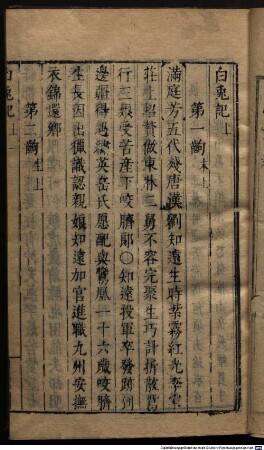 白兎記上
第一齣 末上
滿庭芳五代殘唐漢劉知遠生時紫霧紅光李家
莊上招贅做東床二舅不容完聚生巧計拆散鴛
行三娘受苦產下咬臍郎〇知遠投軍卒發跡到
邊廂得遇綉英岳氏願配與鸞凰一十六歲咬臍
生長因出獵識認親娘知遠加官進職九州安撫
衣錦還鄉
第二齣 生上
白兎記 上 一